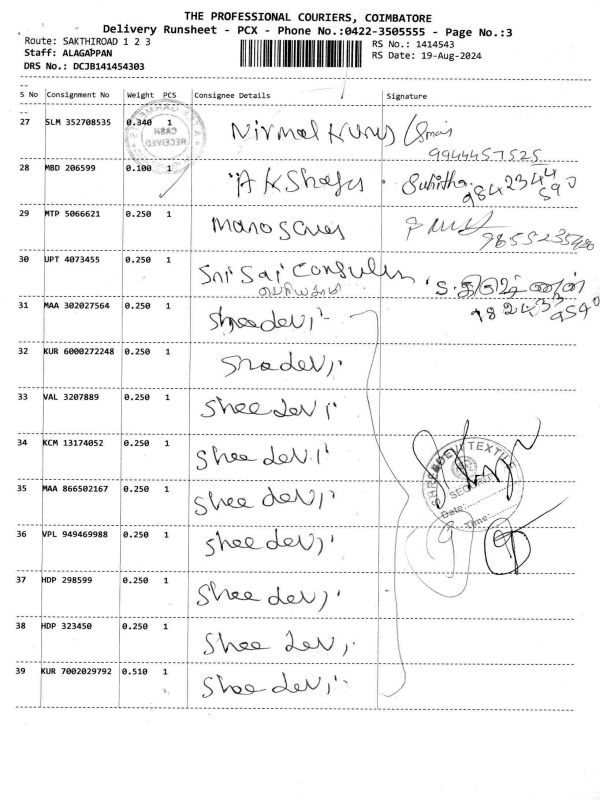 THE PROFESSIONAL COURIERS, COIMBATORE
Delivery Runsheet - PCX - Phone No.:0422-3505555 - Page No.:3
Route: SAKTHIROAD 1 2 3
RS No.: 1414543
Staff: ALAGAPPAN
RS Date: 19-Aug-2024
DRS No.: DCJB141454303
S No Consignment No Weight PCS Consignee Details Signature
27 SLM 352708535 0.340 1
CASH
RECEIVED
9944457525
28 MBD 206599 0.100 1
29 MTP 5066621 0.250 1
30 UPT 4073455 0.250 1 Sri Sai
31 MAA 302027564 0.250 1 Shreedevi
32 KUR 6000272248 0.250 1
33 VAL 3207889 0.250 1 Shee devi
34 KCM 13174052 0.250 1 Shee devi
35 MAA 866502167 0.250 1 Shee devi
36 VPL 949469988 0.250 1 Shee devi
37 HDP 298599 0.250 1 Shee devi
38 HDP 323450 0.250 1 Shee Devi
39 KUR 7002029792 0.510 1 Shee devi
SHREEDEVI TEXTILE
Date:
Time: